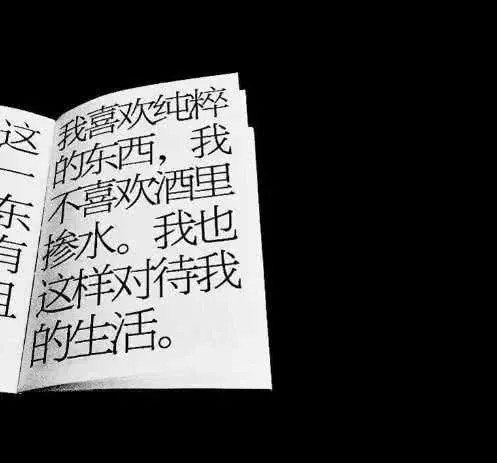 这
一
东
有
且
我喜欢纯粹
的东西，我
不喜欢酒里
掺水。我也
这样对待我
的生活。